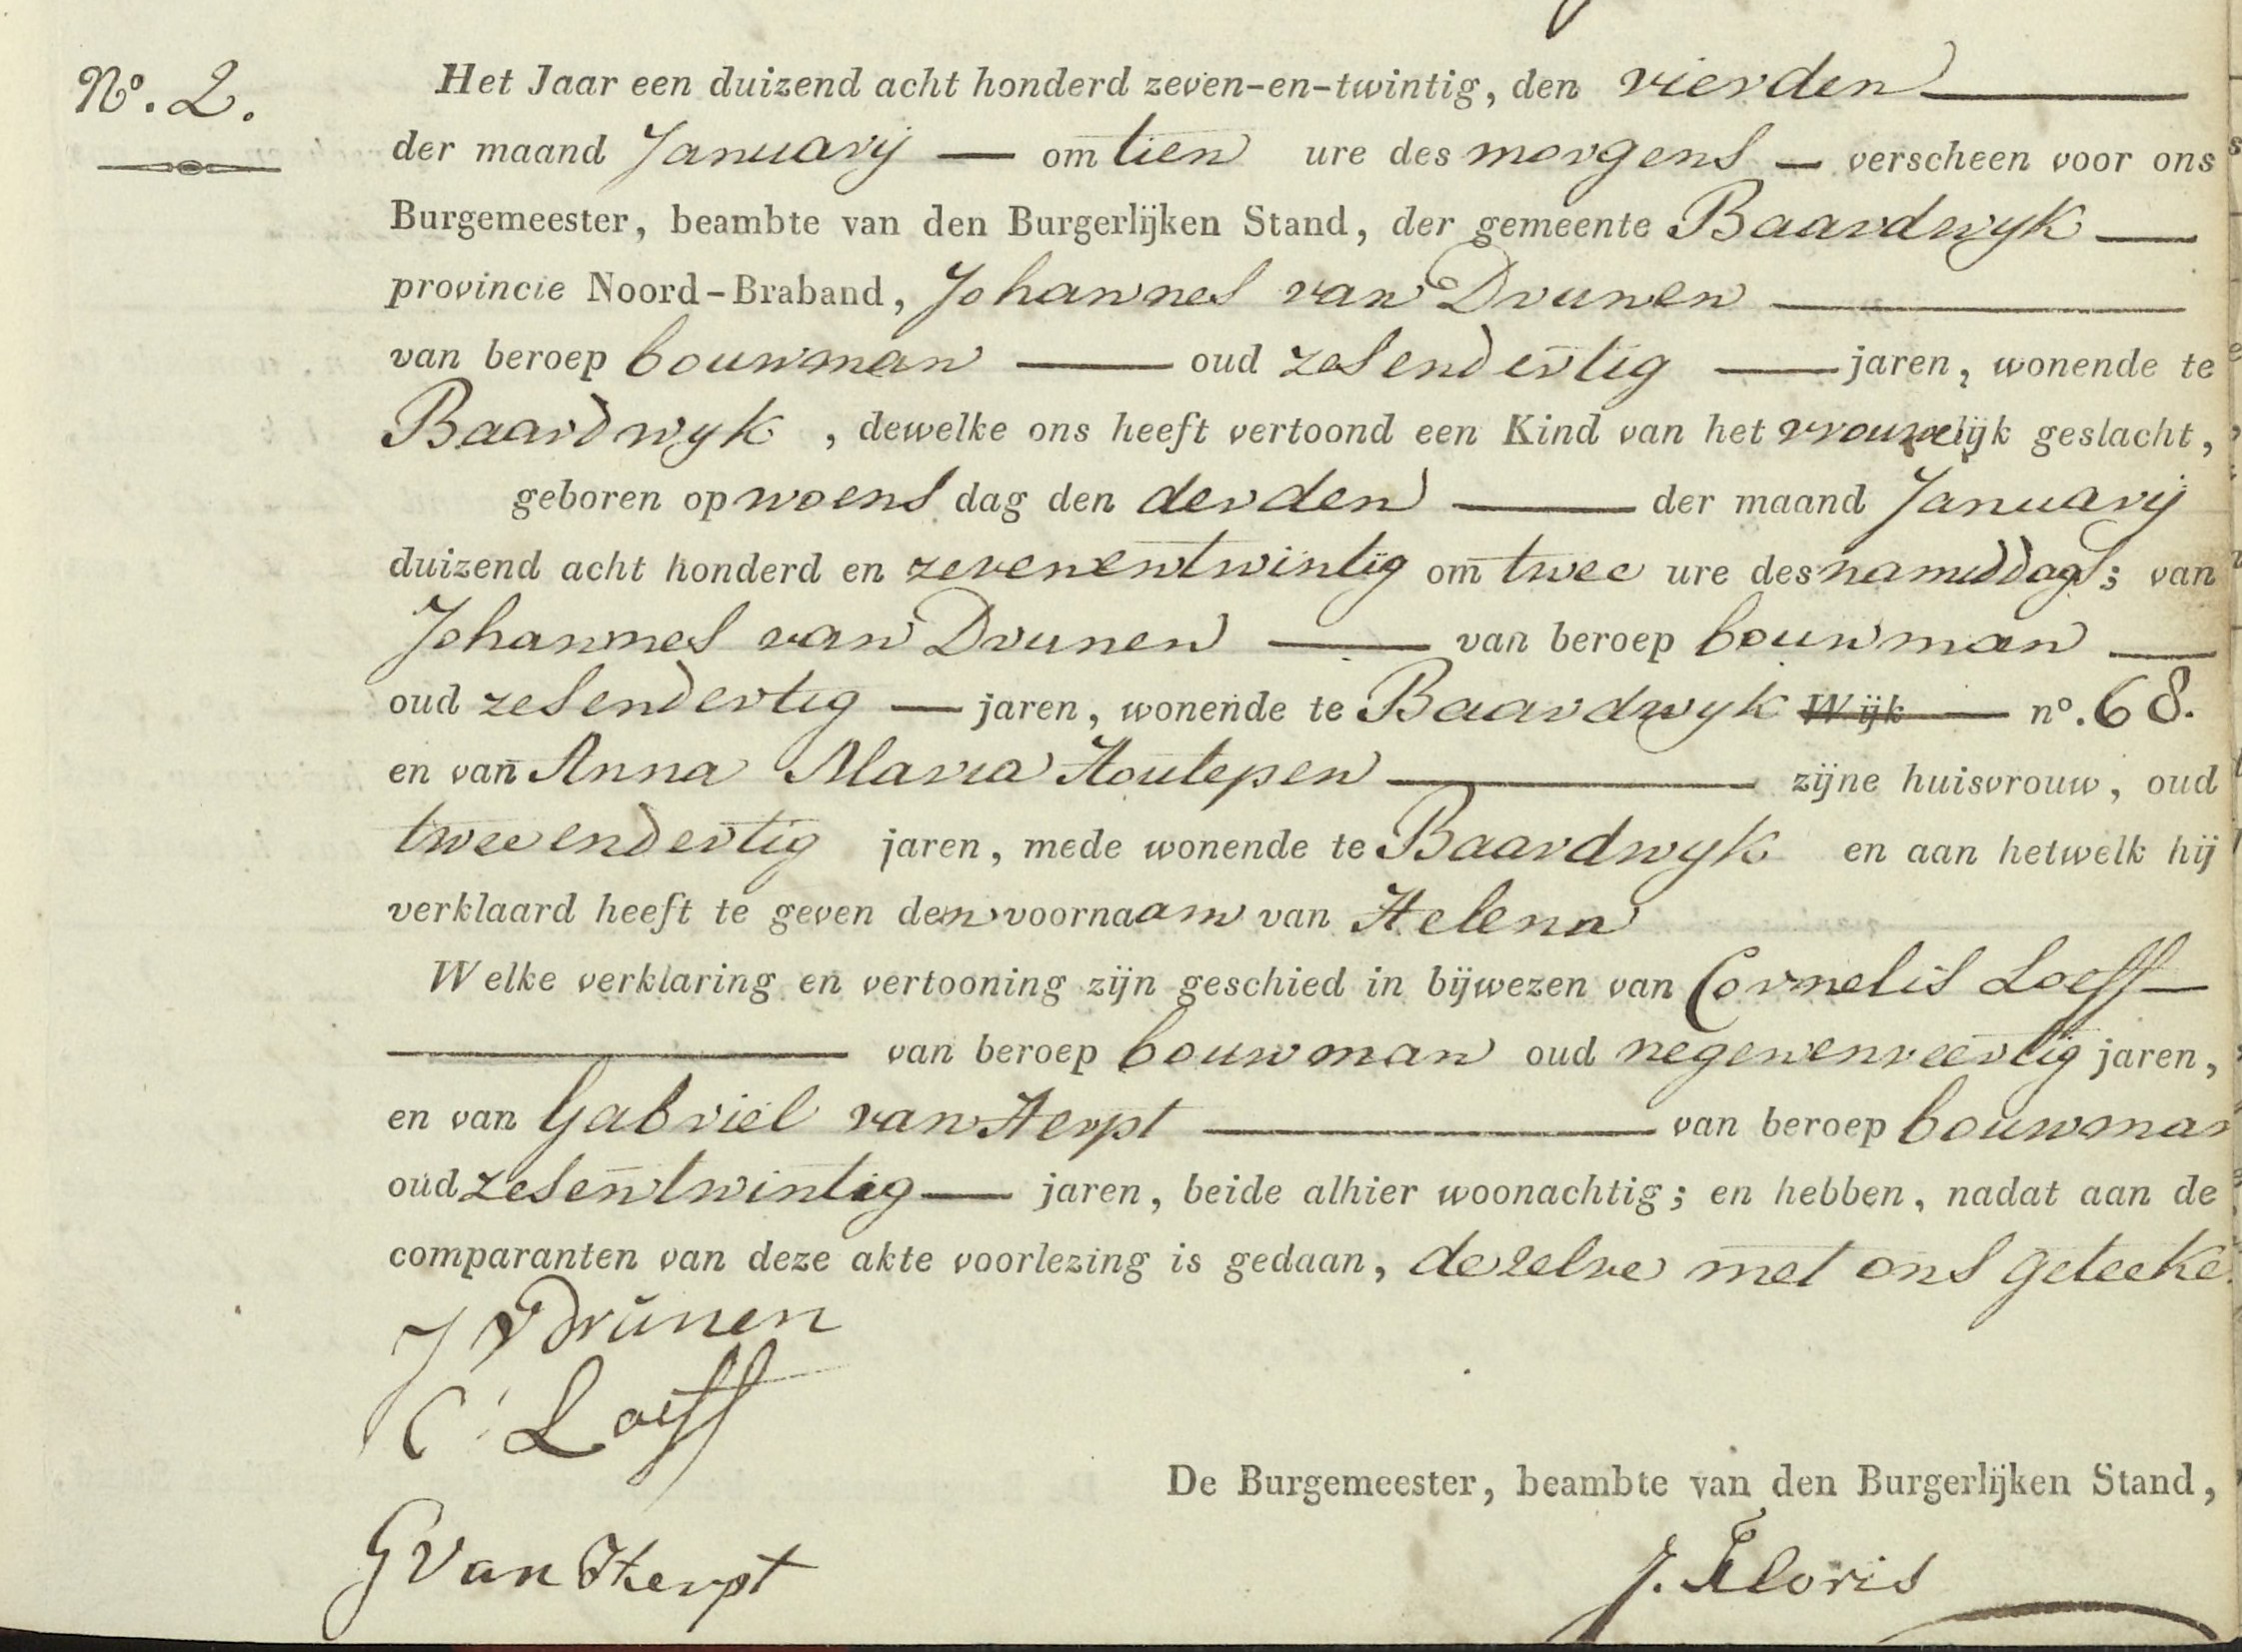 N°. 2.
Het Jaar een duizend acht honderd zeven-en-twintig, den vierden
der maand Januarij — om tien ure des morgens — verscheen voor ons
Burgemeester, beambte van den Burgerlijken Stand, der gemeente Baardwyk —
provincie Noord-Braband, Johannes van Drunen —
van beroep bouwman — oud zesendertig — jaren, wonende te
Baardwyk, dewelke ons heeft vertoond een Kind van het vrouwelijk geslacht,
geboren op woensdag den derden — der maand Januarij
duizend acht honderd en zevenentwintig om twee ure des namiddags; van
Johannes van Drunen — van beroep bouwman —
oud zesendertig — jaren, wonende te Baardwyk Wijk — n°. 68.
en van Anna Maria Houtepen — zijne huisvrouw, oud
tweeendertig jaren, mede wonende te Baardwyk en aan hetwelk hij
verklaard heeft te geven den voornaam van Helena
Welke verklaring en vertooning zijn geschied in bijwezen van Cornelis Loeff —
— van beroep bouwman oud negenenveertig jaren,
en van Gabriel van Herpt — van beroep bouwman
oud zesentwintig — jaren, beide alhier woonachtig; en hebben, nadat aan de
comparanten van deze akte voorlezing is gedaan, dezelve met ons geteeke
J v Drunen
C Loeff
G Van Herpt
De Burgemeester, beambte van den Burgerlijken Stand,
J. Floris